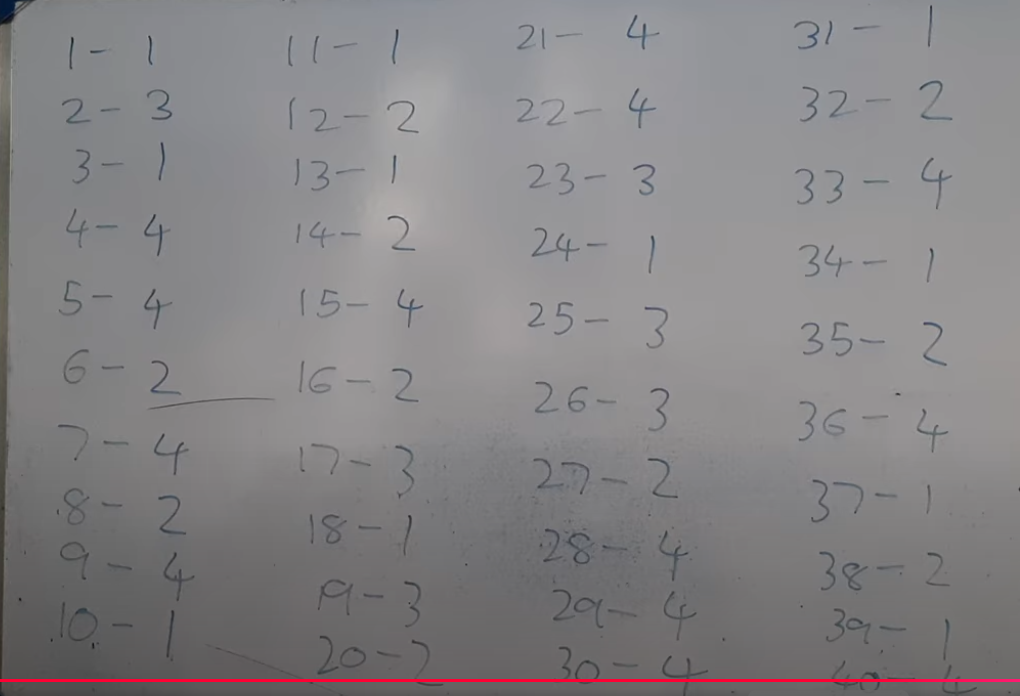 1- 1
2- 3
3- 1
4- 4
5- 4
6- 2
7- 4
8- 2
9- 4
10- 1
11- 1
12- 2
13- 1
14- 2
15- 4
16- 2
17- 3
18- 1
19- 3
20- 2
21- 4
22- 4
23- 3
24- 1
25- 3
26- 3
27- 2
28- 4
29- 4
30- 4
31- 1
32- 2
33- 4
34- 1
35- 2
36- 4
37- 1
38- 2
39- 1
40- 4